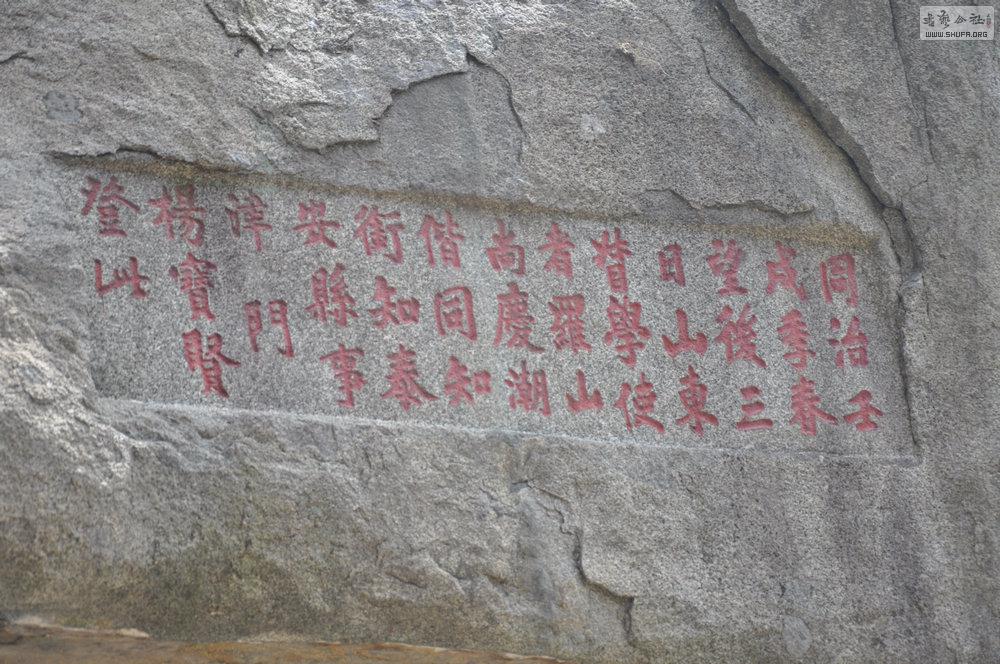 同治壬
戌季春
望後三
日山東
督學使
者羅山
尚慶潮
偕同知
銜知泰
安縣事
津門
楊寶賢
登此
書藝公社
WWW.SHUFA.ORG